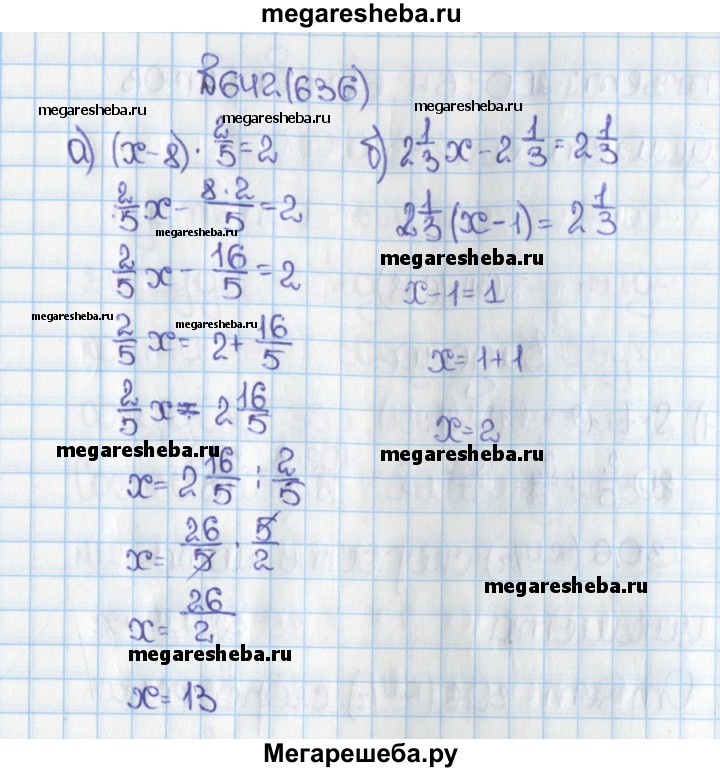 megaresheba.ru
№642(636)
megaresheba.ru megaresheba.ru megaresheba.ru
а) (x-8)·2/5=2
2/5x-8·2/5=2
megaresheba.ru
2/5x-16/5=2
megaresheba.ru megaresheba.ru
2/5x=2+16/5
2/5x=2 16/5
megaresheba.ru
x=2 16/5:2/5
x=26/5·5/2
x=26/2
megaresheba.ru
x=13
б) 2 1/3x-2 1/3=2 1/3
2 1/3(x-1)=2 1/3
megaresheba.ru
x-1=1
x=1+1
x=2
megaresheba.ru
megaresheba.ru
Мегарешеба.ру